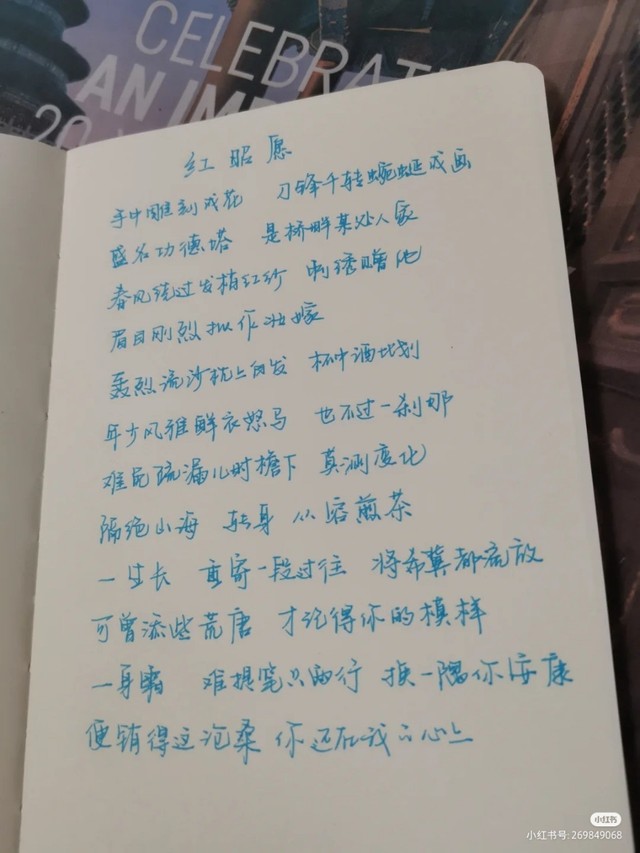 CELEBRATI
AN IM
#20
红昭愿
手中雕刻戏花 刀锋千转蜿蜒戏画
盛名功德塔 是桥畔某处人家
春风绕过发梢红纱 刺绣赠他
眉目刚烈拟作妆嫁
轰烈流沙枕上白发 杯中酒比划
年少风雅鲜衣怒马 也不过一刹那
难免疏漏儿时檐下 莫测变化
隔绝山海 转身 从容煎茶
一生长 重寄一段过往 将希冀都流放
可曾添些荒唐 才记得你的模样
一身霜 难提笔只两行 换一隅你安康
便销得这沧桑 你还在我的心上
小红书
小红书号: 269849068